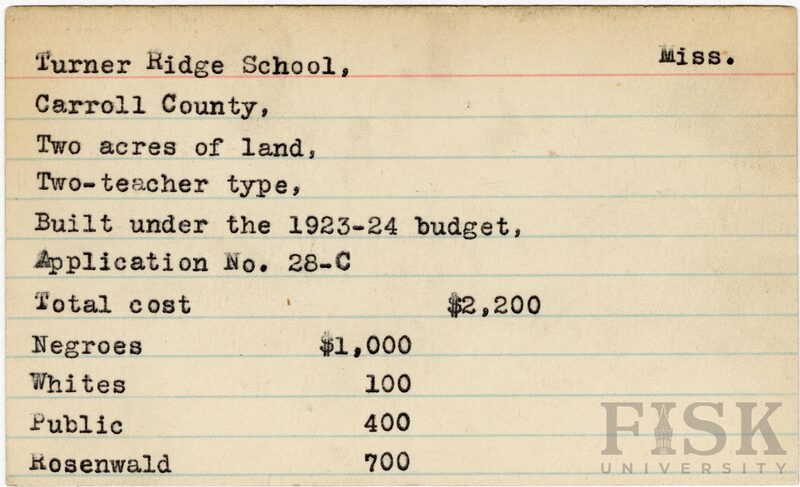 Turner Ridge School, Miss.
Carroll County,
Two acres of land,
Two-teacher type,
Built under the 1923-24 budget,
Application No. 28-C
Total cost $2,200
Negroes $1,000
Whites 100
Public 400
Rosenwald 700
FISK
UNIVERSITY